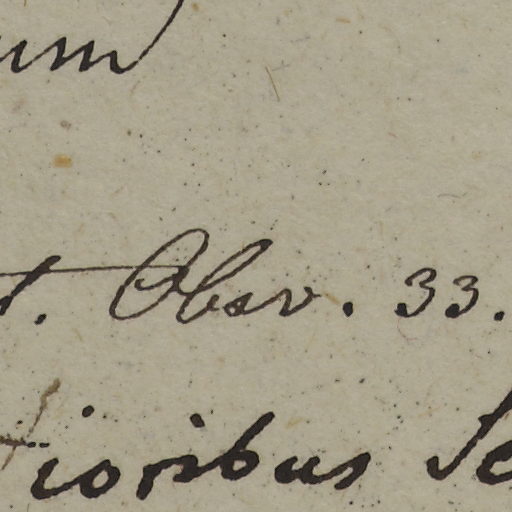 um
t. Obsv. 33.
ioribus Se